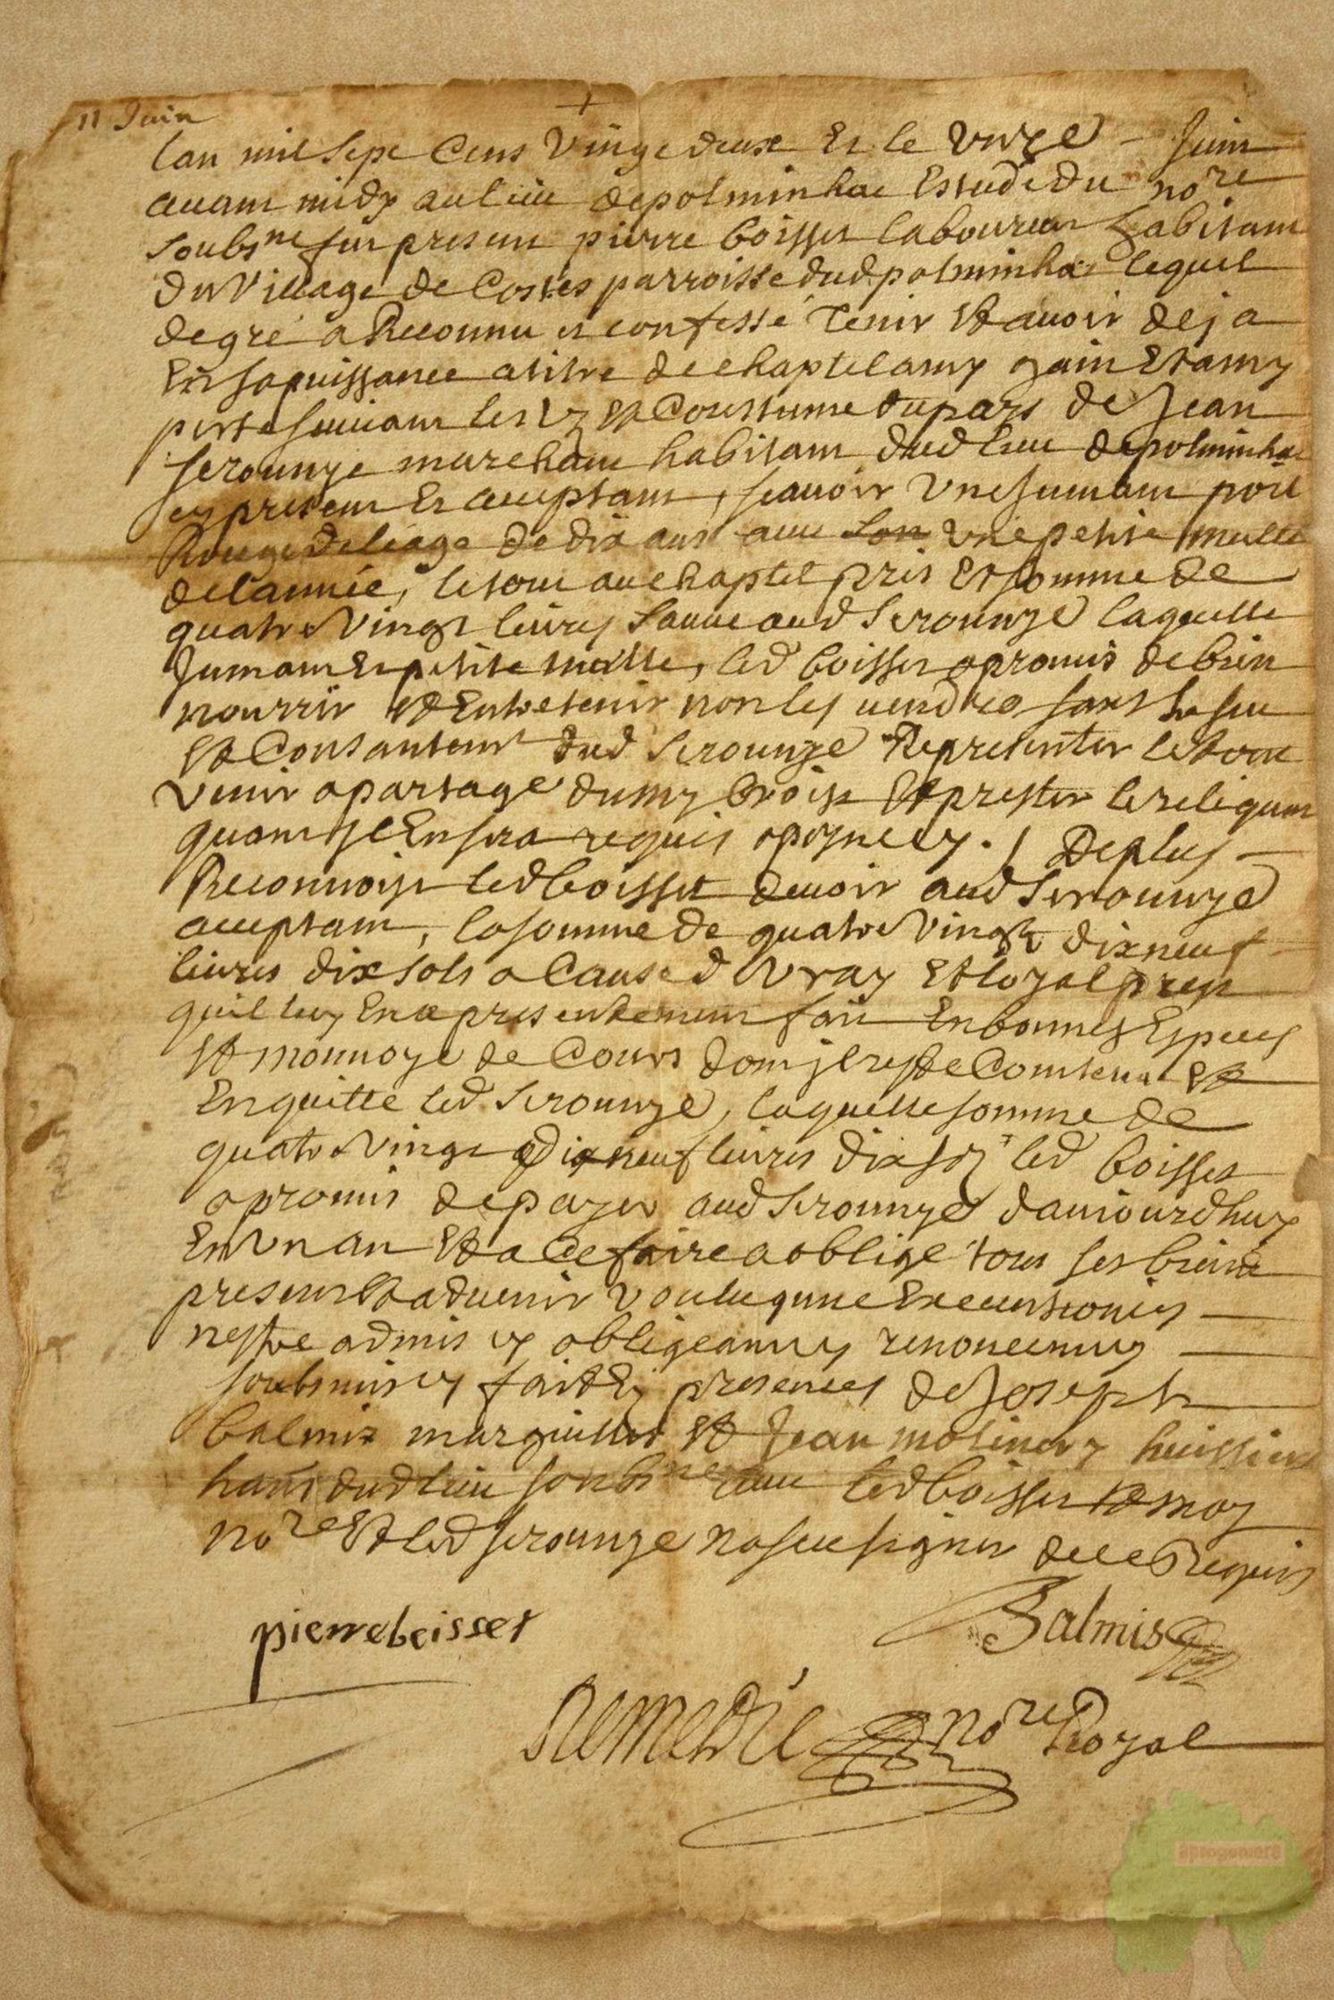 11 Juin
+
lan mil sept Cens Vingt deux Et le Unze - Juin
auant midy au lieu de polminhac Estude du no.re
soubs.ne fut present pierre boisset laboureur habitant
du Village de Costes parroisse dud polminhac lequel
de gré a Reconnu et confessé Tenir Et auoir deja
En sa puissance a titre de chaptel a my gain Et a my
perte suiuant les Uz Et Coustume du pays de Jean
serounze marchant habitant dud lieu de polminhac
cy present Et acceptant, scauoir Une jumant poil
Rouge de leage de dix ans auec son Une petite mulle
de lannée, le tout au chaptel pris Et somme de
quatre Vingt liures sauue aud serounze laquelle
Jumant Et petite mulle, led boisset a promis de bien
nourrir Et Entretenir non les vendre sans le sceu
Et Consantemt dud serounze Representer le tout
Venir a partage du my Croist Et prester le reliquat
quant jl En sera requis a peyne cy. / De plus
Reconnoist led boisset deuoir aud serounze
acceptant, la somme de quatre Vingt dix neuf
liures dix sols a Cause d Vray Et loyal prest
quil luy En a presentement fait En bonnes Especes
Et monnoye de Cours dont jl reste Contant Et
En quitte led serounze, laquelle somme de
quatre Vingt dix neuf liures dix sos led boisset
a promis de payer aud serounze daujourdhuy
En Un an Et a Ce faire a oblige tous ses biens
presens Et aduenir Voulu qune Execustion cy
nestre admis cy obligeant cy renonceant cy
soubmis cy fait Ez presences de Joseph
balmis marguillier Et Jean molinery huissier
hans dud lieu soubs.nes auec led boisset Et moy
no.re Et led serounze na sceu signer de ce Requis
pierre beisset
Balmis
Remedie no.re Royal
apoogomera